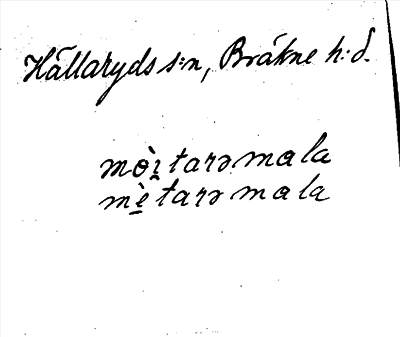 Hällaryds s:n, Bräkne h:d.
mòi̯tarəmala
mè̱tarəmala